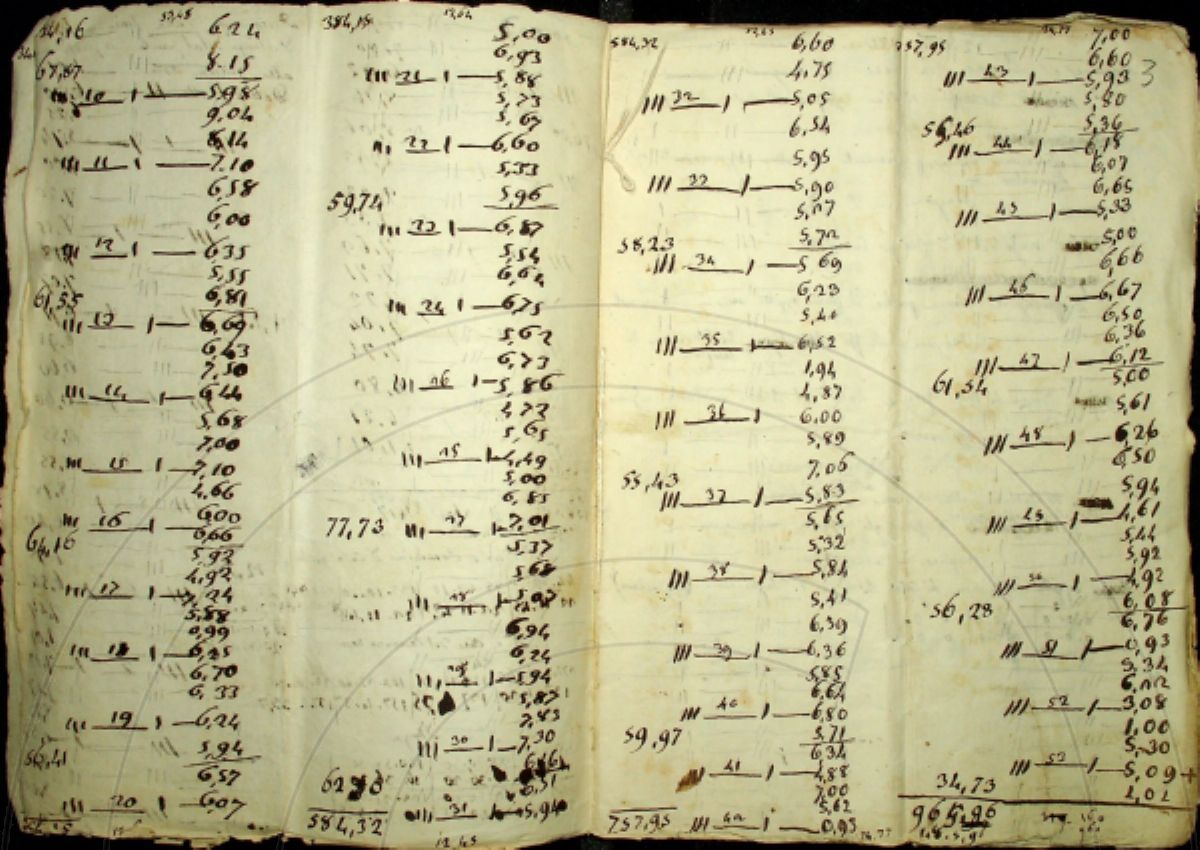 6,24
67,87 8,15
III 10 I — 5,98
9,04
6,14
III 11 I — 7,10
6,58
6,00
III 12 I — 6,35
5,55
61,55 6,81
III 13 I — 6,69
6,43
7,50
III 14 I —
5,68
7,00
III 15 I — 7,10
4,66
III 16 I — 6,00
6,66
5,92
4,92
III 17 I —
5,88
III 18 I — 6,25
6,70
6,33
III 19 I — 6,24
5,94
6,57
III 20 I — 6,07
384,15
5,00
6,93
III 21 I — 5,88
5,73
5,67
III 22 I — 6,60
5,33
59,74 5,96
III 23 I — 6,87
5,54
6,64
III 24 I — 6,75
5,62
6,73
III 16 I — 5,86
4,73
5,65
III 15 I — 4,49
5,00
6,85
77,73 III 27 I — 7,01
5,37
5,68
6,94
6,24
5,94
5,87
7,83
III 30 I — 7,30
584,32 III 31 I — 5,94
12,45
584,32
6,60
4,75
III 32 I — 5,05
6,54
5,95
III 33 I — 5,90
5,17
58,23 5,72
III 34 I — 5,69
6,23
5,40
III 35 I — 6,52
1,94
4,87
III 36 I 6,00
5,89
7,06
55,43
III 37 I — 5,83
5,65
5,32
III 38 I — 5,84
5,41
6,39
III 39 I — 6,36
5,85
6,64
III 40 I — 6,80
59,97 5,71
6,34
III 41 I — 4,88
7,00
5,62
757,95 III 42 I — 0,95
757,95
7,00
6,60
III 43 I — 5,93
3
5,80
56,46 5,36
III 44 I — 6,18
6,07
6,65
III 45 I — 5,33
5,00
6,66
III 46 I — 6,67
6,50
6,36
III 47 I — 6,12
61,54 5,00
5,61
III 48 I — 6,26
6,50
5,94
III I — 4,61
5,44
5,92
III 50 I — 4,92
56,28 6,08
6,76
III 51 I — 0,93
5,34
6,02
III 52 I — 3,08
1,00
5,30
III 53 I — 5,09
34,73
965,96